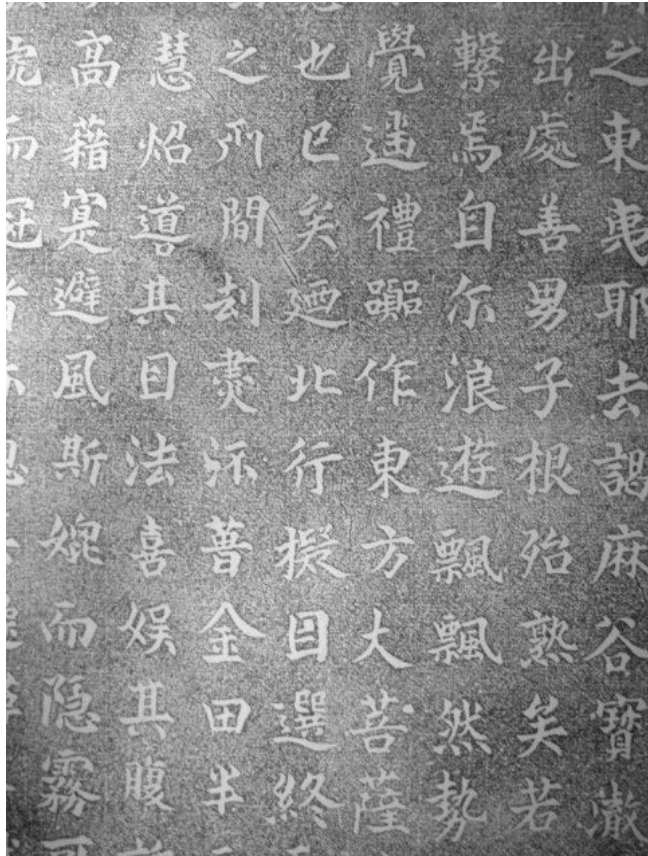 之東夷耶去謁麻谷寶澈
出處善男子根殆熟矣若
繫焉自尒浪遊飄飄然勢
覺禮作東方大菩薩
也已矣廼北行擬目選終
之所間刦金田半
慧炤道其目法喜娛其腹
高藉寔避風斯媲而隐霧